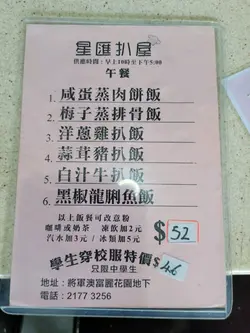 星匯扒屋
供應時間：早上10時至下午5:00
午餐
1. 咸蛋蒸肉餅飯
2. 梅子蒸排骨飯
3. 洋蔥雞扒飯
4. 蒜茸豬扒飯
5. 白汁牛扒飯
6. 黑椒龍脷魚飯
以上飯餐可改意粉
咖啡或奶茶 凍飲加2元
汽水加3元 / 冰類加5元
$52
學生穿校服特價$46
只限中學生
地址：將軍澳富麗花園地下
電話：2177 3256